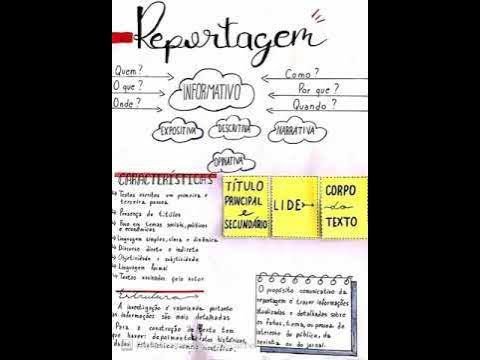 Reportagem
Quem?
O que?
Onde?
INFORMATIVO
Como?
Por que?
Quando?
EXPOSITIVA
DESCRITIVA
NARRATIVA
OPINATIVA
CARACTERÍSTICAS
Textos escritos em primeira e
terceira pessoa
Presença de títulos
Foco em temas sociais, políticos
e econômicos
Linguagem simples, clara e dinâmica
Discurso direto e indireto
Objetividade e subjetividade
Linguagem formal
Textos assinados pelo autor
TÍTULO
PRINCIPAL
e
SECUNDÁRIO
LIDE
CORPO
do
TEXTO
Estrutura
A investigação é valorizada, portanto
as informações são mais detalhadas
Para a construção do texto tem
que haver: depoimentos, dados históricos,
dados estatísticos,
O propósito comunicativo da
reportagem é trazer informações
atualizadas e detalhadas sobre
os fatos, tema, ou pessoa de
interesse do público, da
revista ou do jornal.